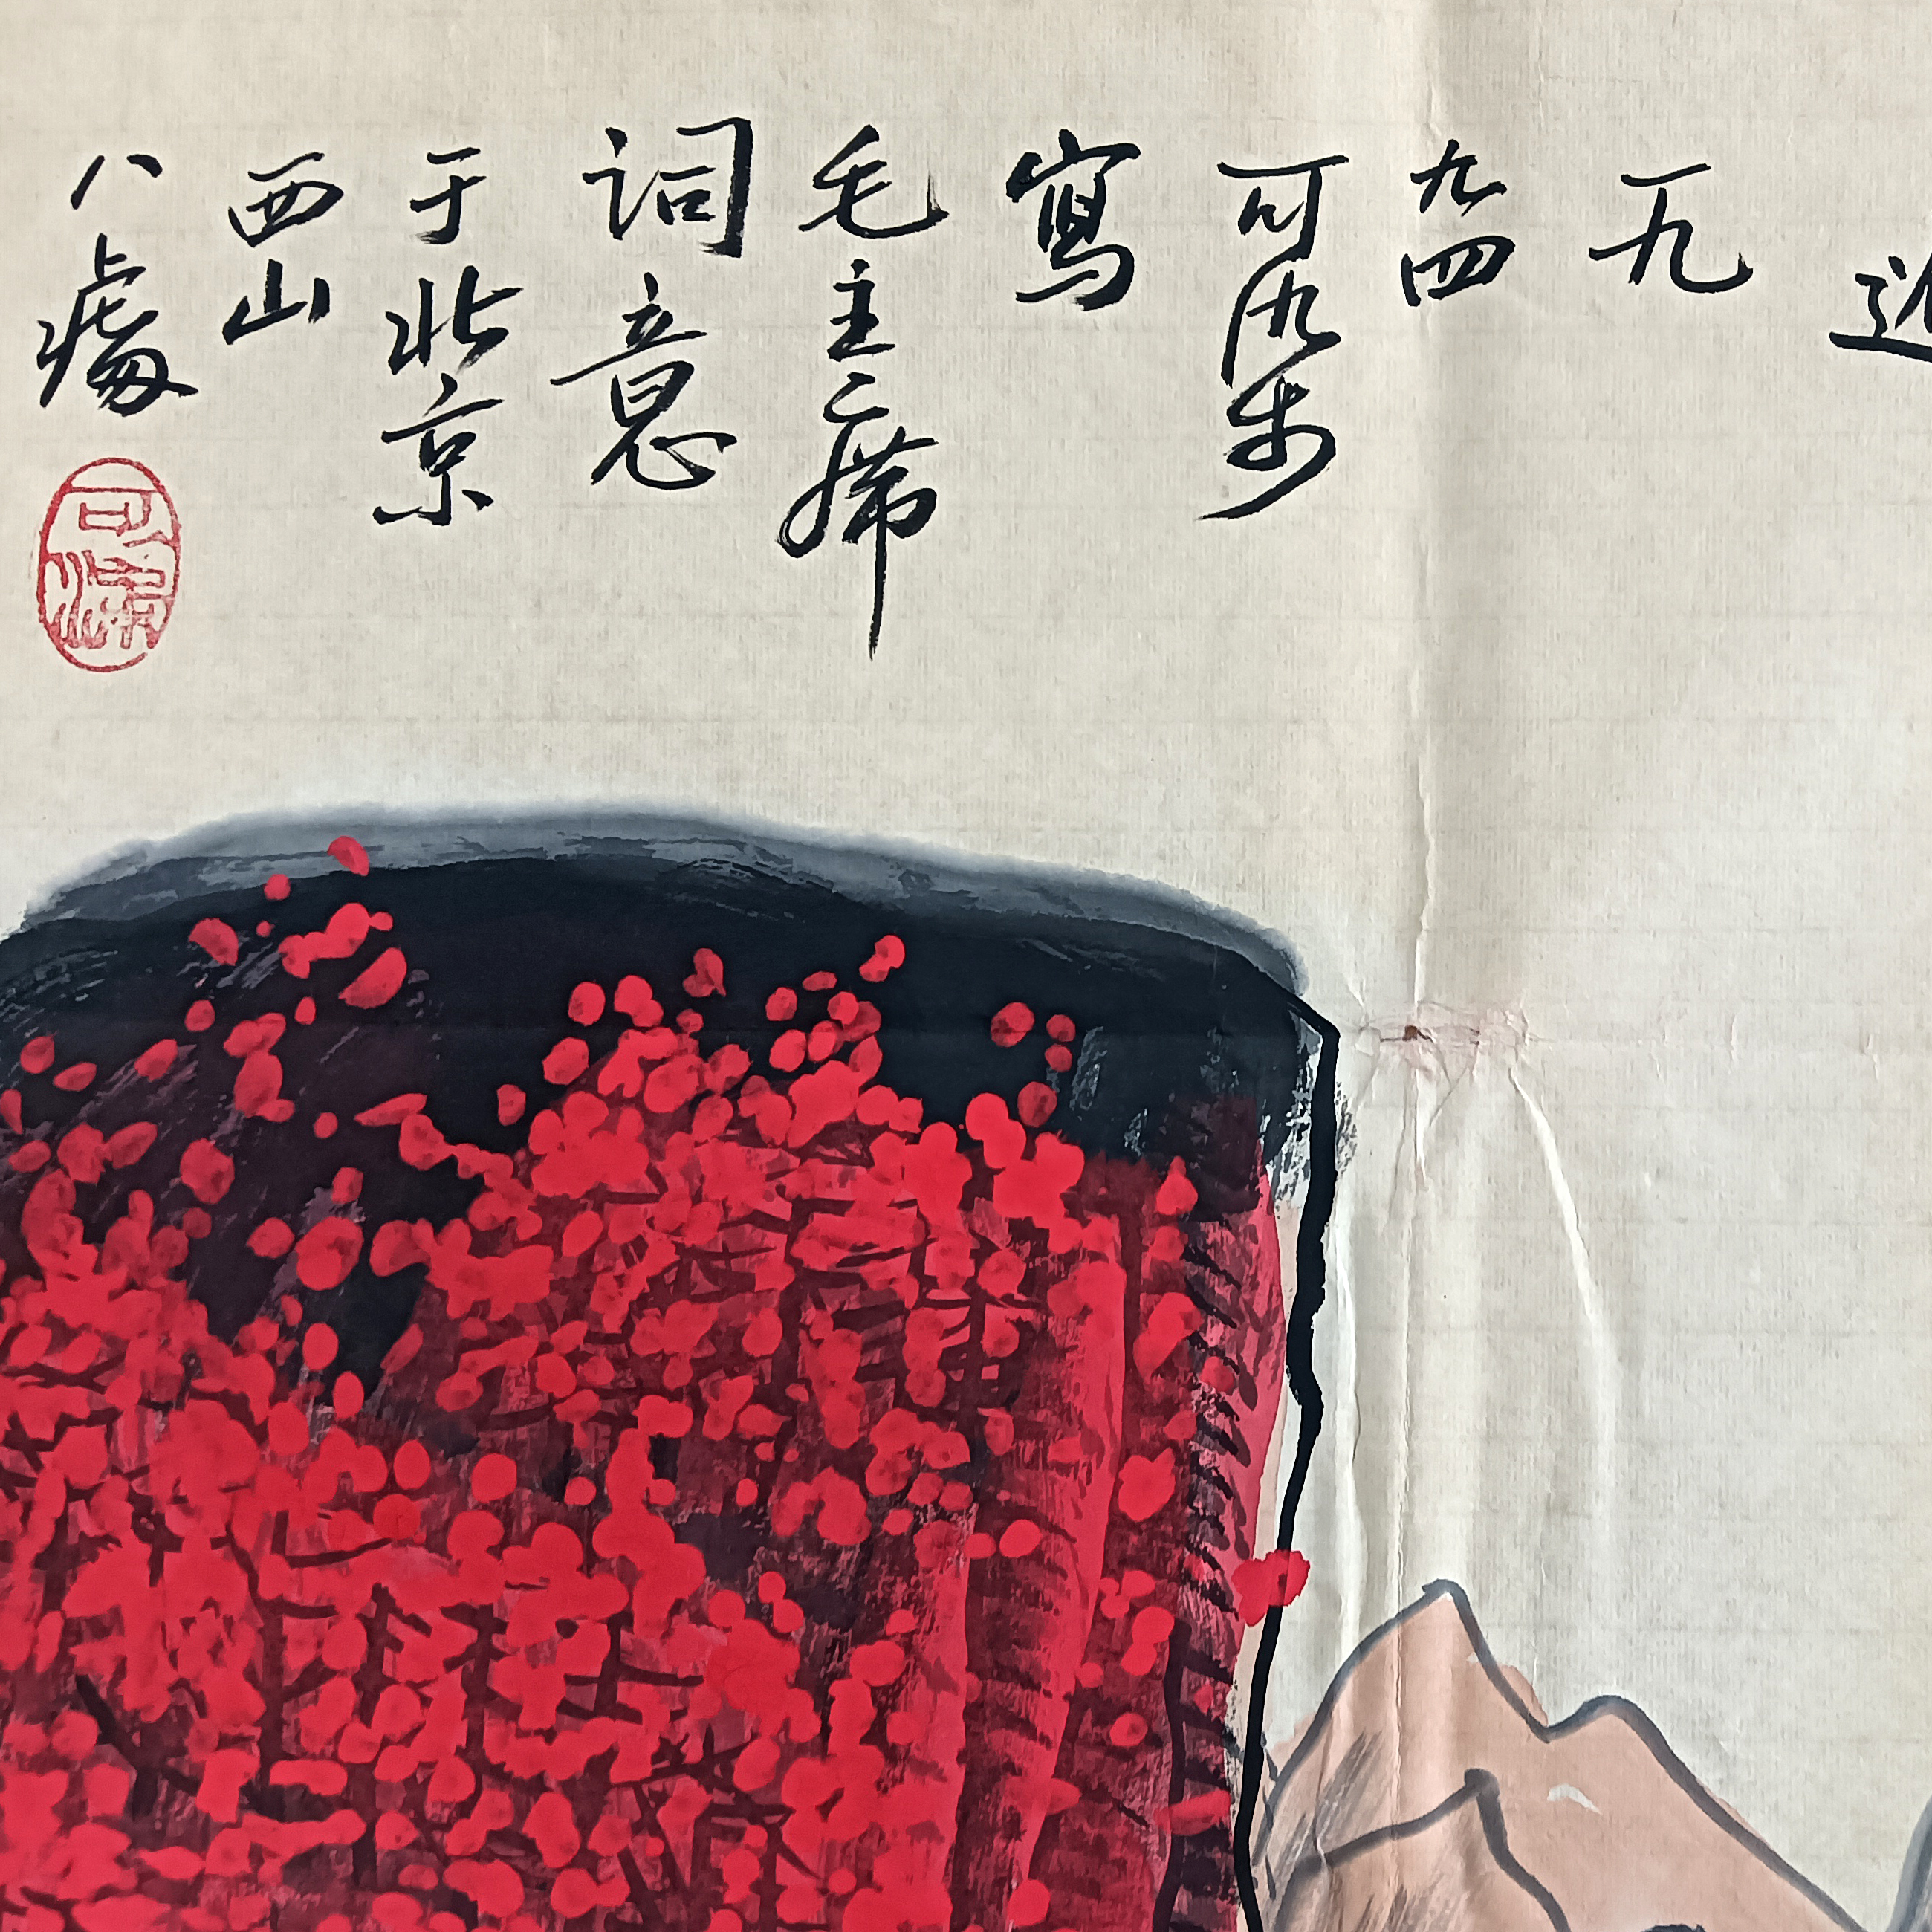 一九
六四
可染
寫
毛主席
词意
于北京
西山
八處
可染